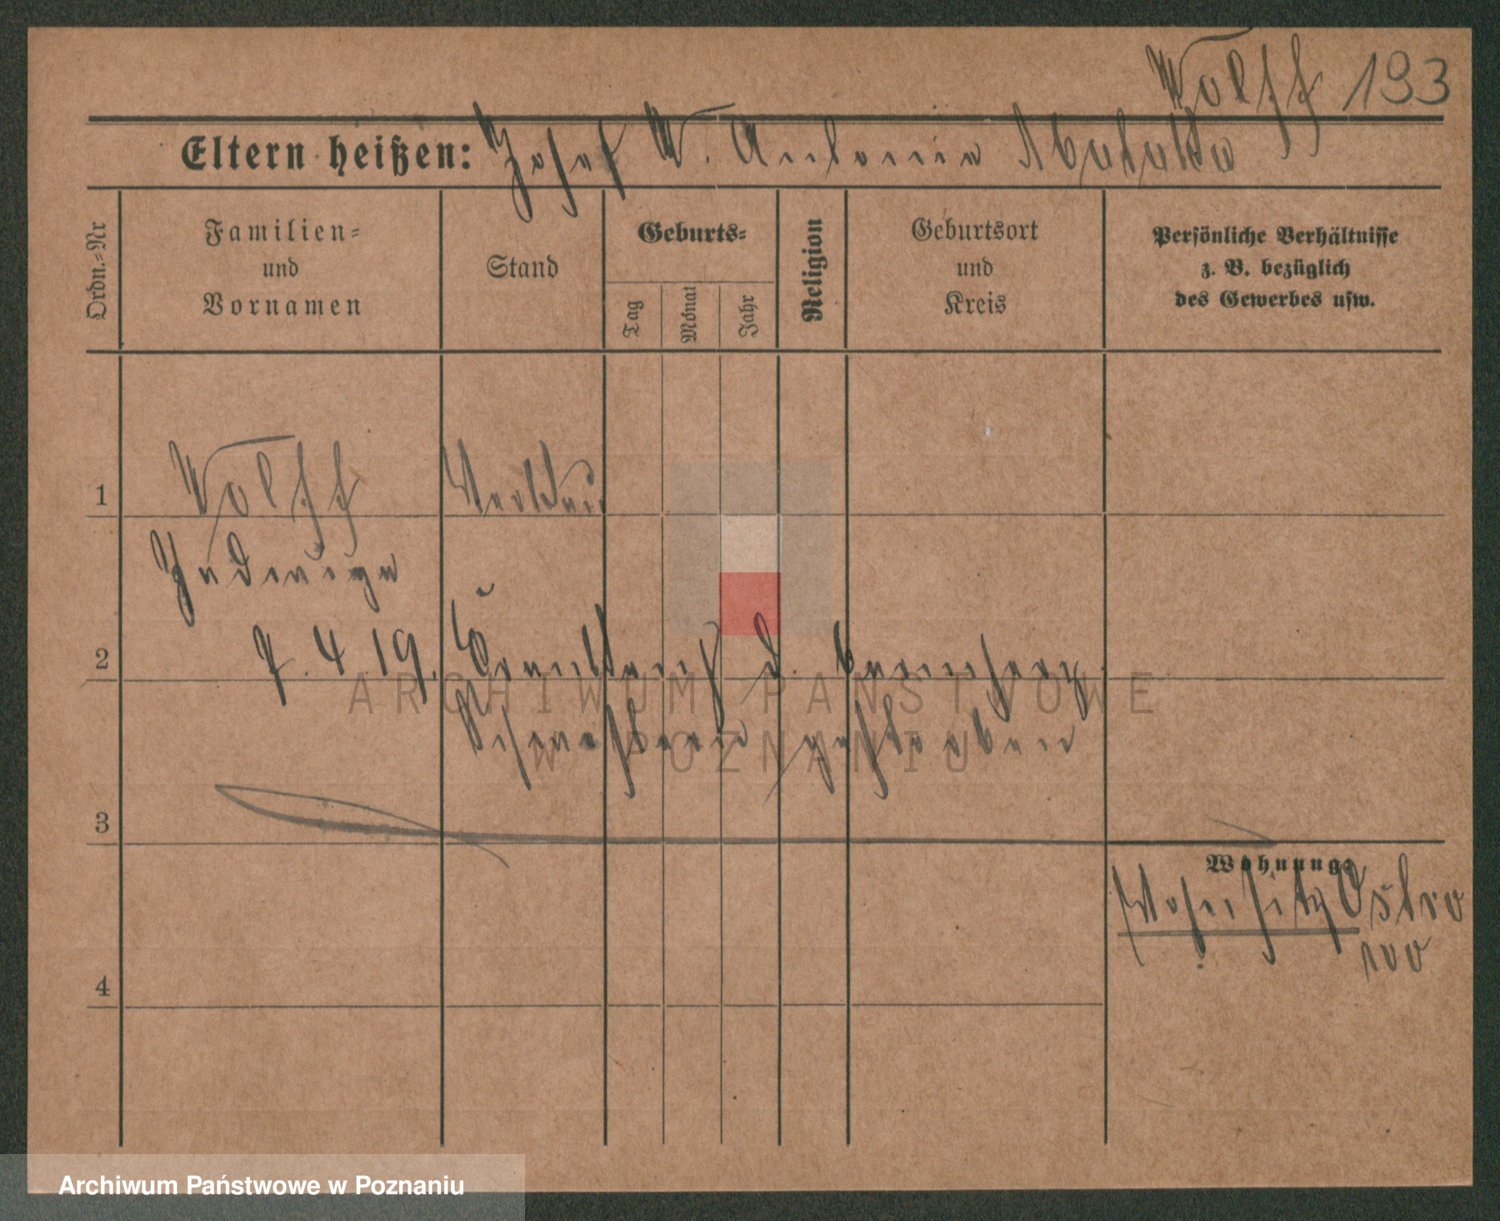 Wolff 193
Eltern heißen: Josef W. Antonia
Ordn.-Nr
Familien-
und
Vornamen
Stand
Geburts-
Tag
Monat
Jahr
Religion
Geburtsort
und
Kreis
Persönliche Verhältnisse
z. B. bezüglich
des Gewerbes usw.
1
Wolff
Jadwiga
2
7. 4. 19.
gestorben
3
Wohnung:
Wohnsitz Ostro
wo
4
ARCHIWUM PAŃSTWOWE
W POZNANIU
Archiwum Państwowe w Poznaniu